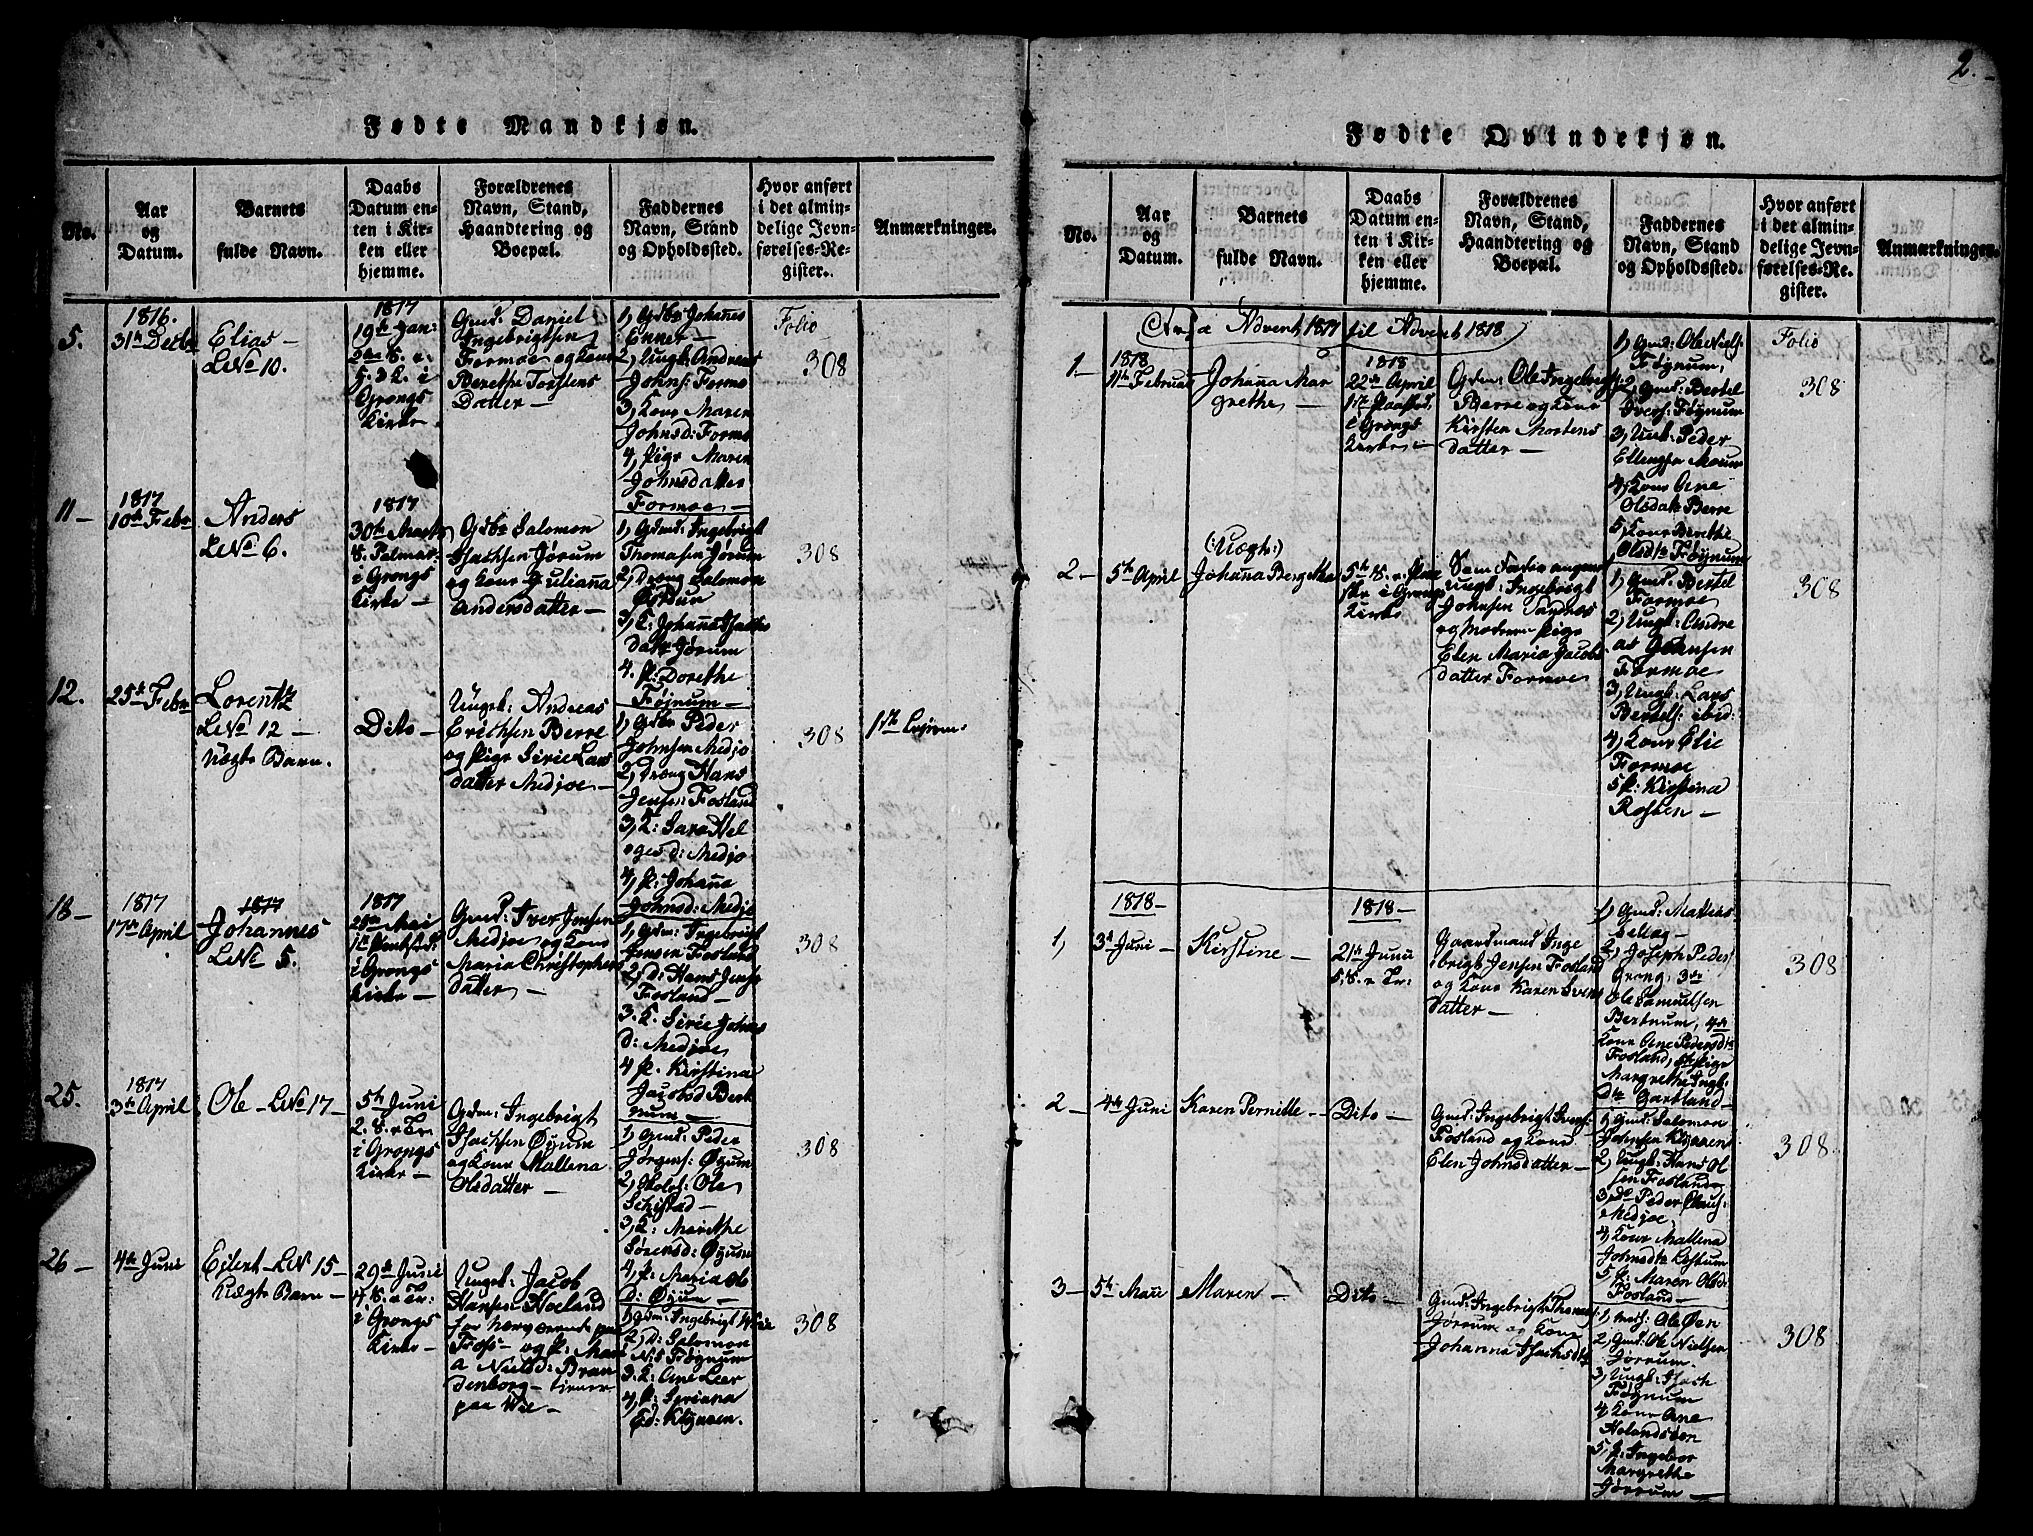 2.
Fødte Mandkjøn.
No.
Aar
og
Datum.
Barnets
fulde Navn.
Daabs
Datum en-
ten i Kir-
ken eller
hjemme.
Forældrenes
Navn, Stand,
Haandtering og
Boepæl.
Faddernes
Navn, Stand
og Opholdssted.
Hvor anført
i det almin-
delige Jevn-
førelses-Re-
gister.
Anmærkninger.
5.
1816.
31te Decbr
Elias
LNo 10.
1817
19de Jan:
i
Grongs
Kirke
Gmd: Daniel
Ingebrigtsen
Formoe og Kone
Berethe Torstens
Datter
1, Gdbr Johañes
Enner
2, Ungk: Andreas
Johns: Formo
3, Kone Maren
Johnsd: Formo
4, Pige Maren
Johnsdatter
Formoe
Folio
308
11
1817
10de Febr
Anders
LNo 6.
1817
30te Marts
S. Palmar:
i Grongs
Kirke
Gdbr Salomon
Isachsen Jørum
og Kone Juliaña
Andersdatter
1, Gdmd: Ingebrigt
Thomasen Jørum
2, Dreng Salomon
3, K: Johaña Isachs
Datr Jørum
4. P: Dorethe
Føjnum
308
12.
25de Febr
Lorentz
LNo 12
Uægte Barn.
Dito
Ungk: Andreas
Erichsen Berre
og Pige Sirie Lars
datter Medjoe
1, Gdbr Peder
Johnsen Medjo
2, Dreng Hans
Jensen Fosland
3, K: Sara Hel
ges d: Medjo
4, P: Johaña
Johnsd: Medjo
308
18
1817
17de April
1817
Johannes
LNo 5.
1817
Mai
i Grongs
Kirke
Gmd: Iver Jensen
Medjoe og Kone
Maria Christophers
datter
1, Gdm: Ingebrigt
Jensen Fosland
2, D: Hans Jens:
Fosland
3. K. Sirie Johns
d: Medjoe
4 P. Kirstina
Jacobsd Bert
num
308
25.
1817
3de April
Ole LNo 17
5te Juni
2. S. e Tr
i Grongs
Kirke
Gdm: Ingebrigt
Isachsen Øyum
og Kone Mallena
Olsdatter
1, Gmd: Peder
Jørgens: Øyum
2, Ole
3, K: Marithe
Sørensd: Øyum
4, P: Maria Ols
d: Øyum
308
26
4de Juni
Eilert LNo 15
Uægte Barn
29de Juni
4 S. e Tr:
i Grongs
Kirke
Ungk: Jacob
Hansen Hoeland
for nærværende paa
Foss og P: Mari
a Nielsd: Bran
denborg tiener
paa Wie
1, Gdm: Ingebrigt Wie
2, D: Salomon
N: S Føgnum
3. K: Ane Leer
4, P: Seriana
308
Fødte Qvindekjøn.
No.
Aar
og
Datum.
Barnets
fulde Navn.
Daabs
Datum en-
ten i Kir-
ken eller
hjemme.
Forældrenes
Navn, Stand,
Haandtering og
Boepæl.
Faddernes
Navn, Stand
og Opholdssted.
Hvor anført
i det almin-
delige Jevn-
førelses-Re-
gister.
Anmærkninger.
Fra Advent 1817 til Advent 1818
1
1818
11te Februar
Johaña Mar
grethe
1818
22de April
i Grongs
Kirke
Gdm: Ole Ingebrigts:
Berre og Kone
Kirsten Mortens
datter
1, Gmd: Ole Niels:
Føgnum,
2, Gmd: Bertel
Ivers: Føgnum
3, Ungk: Peder
Ellingsen Moum
4, Kone Ane
Olsdatr Berre
5, Kone Berethe
Olsdtr Føgnum
Folio
308
2
5te April
(Uægte:)
Johaña Berg
i Grongs
Kirke
Som Fader angives
Ungk: Ingebrigt
Johnsen Sandnes
og Moderen Pige
Elen Maria Jacobs
datter Formoe
1, Gmd: Bertel
Formoe
2, Ungk: Andre
as Johnsen
Formoe
3, Ungk: Lars
Bertels: ibid:
4, Kone Elie
Formoe
5 P: Kirstina
Rosten
308
1,
1818
3de Juni
Kirstine
1818
21de Juni
5. S. e Tr:
Gaardmand Inge
brigt Jensen Fosland
og Kone Karen Svens
datter
1, Gmd: Mathias
2, Joseph Peders
Grong, 3de
Ole Samuelsen
Bertnum, 4de
Kone Ane Pedersdtr
Fosland, 5te Pige
Margrethe Ingb:
Dtr Gartland
308
2
4de Juni
Karen Pernille
Dito
Gmd: Ingebrigt Svens:
Fosland og Kone
Elen Johnsdatter
1, Gmd: Salomon
Johnsen
2, Ungk: Hans Ol
sen Fosland
3, do Peder Claus:
Medjoe
4, Kone Mallena
Johnsdtr
5, P: Maren Olsd:
Fosland
308
3
5te Maii
Maren
Dito
Gmd: Ingebrigt Thomas:
Jørrum og Kone
Johanna Isachsdtr
1, Ole Øen
2, Gmd: Ole Nielsen
Jørrum.
3, Ungk: Isach
Føgnum
4, Kone Ane
5, P: Ingebor
Margrethe
Jørrum
308